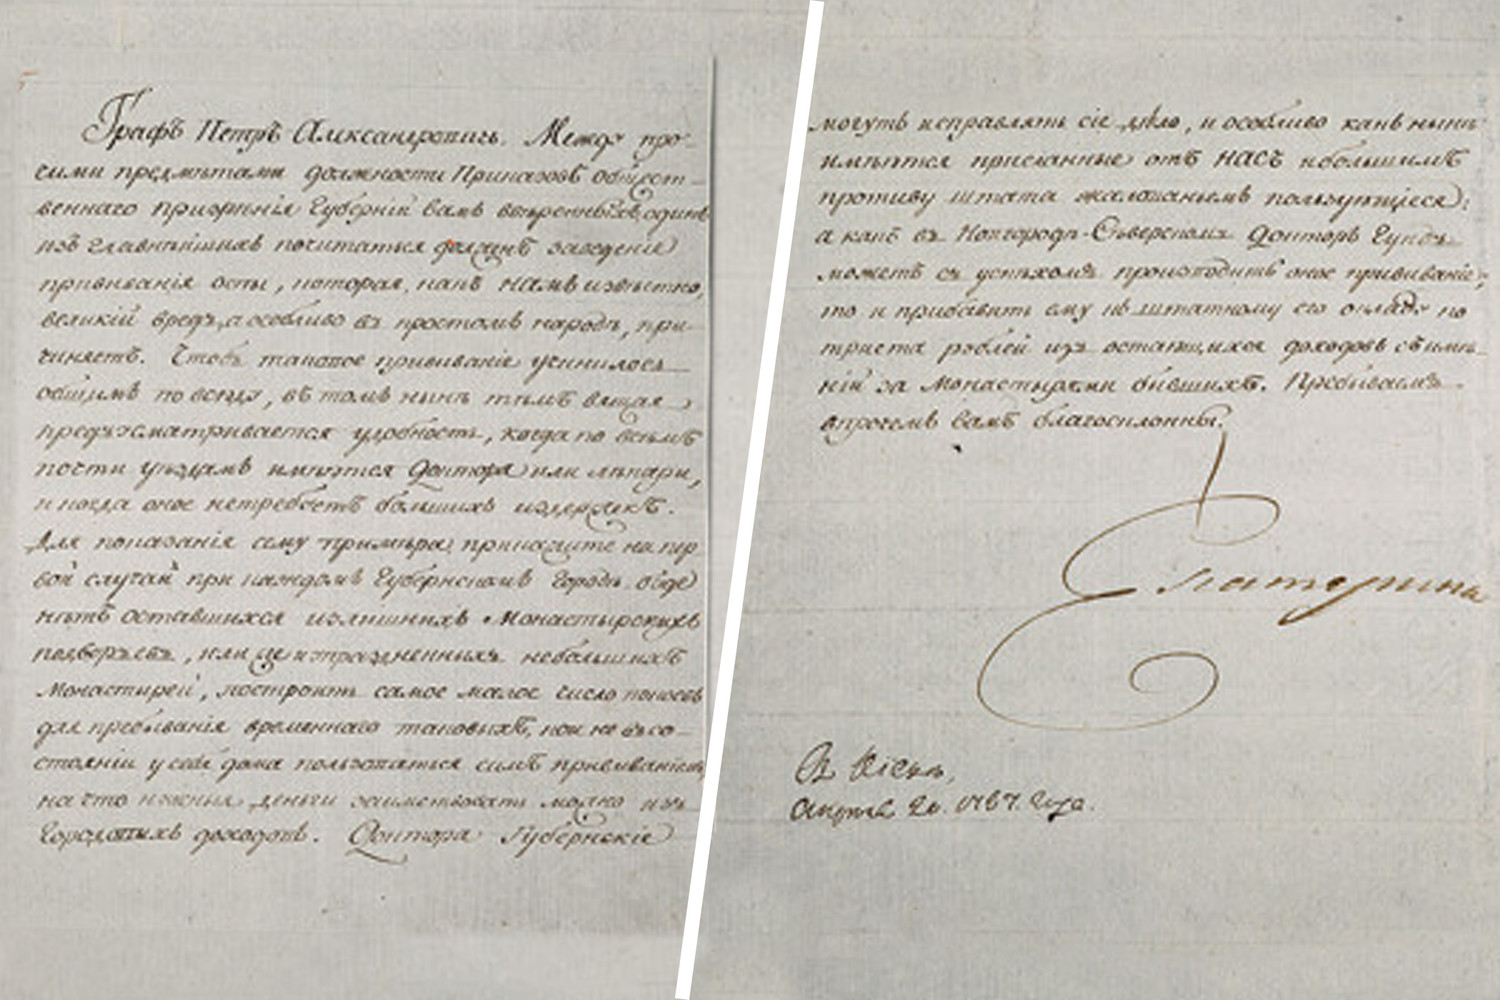 Графъ Петръ Александровичь. Между про-
чими предмѣтами должности Приказовъ общест-
веннаго призрѣнія Губерній вамъ ввѣренныхъ, одинъ
изъ главнѣйшихъ почитаться долженъ заведеніе
прививанія оспы, которая, какъ НАМЪ извѣстно,
великій вредъ, а особливо въ простомъ народѣ, при-
чиняетъ. Чтобъ таковое прививаніе учинилось
общимъ повсюду, въ томъ нынѣ тѣмъ вящая
предъусматривается удобность, когда по всѣмъ
почти уѣздамъ имѣются Доктора или лѣкари,
и когда оное нетребуетъ большихъ издержекъ.
Для показанія сему примѣра, прикажите на пер-
вой случай при каждомъ Губернскомъ Городѣ, въ одѣ
нѣтъ оставшихся излишнихъ Монастырскихъ
подворьевъ, или же и упраздненныхъ небольшихъ
Монастырей, построить самое малое число покоевъ
для пребыванія временнаго таковыхъ, кои не въсо-
стояніи у себя дома пользоваться симъ прививаніемъ,
на что нужныя деньги заимствовать можно изъ
Городовыхъ доходовъ. Доктора Губернскіе
могутъ исправлять сіе дѣло, и особливо какъ нынѣ
имѣются присланные отъ НАСЪ ибольшимъ
противу штата жалованьемъ пользующіеся;
а какъ въ Новгородѣ-Сѣверскомъ Докторъ Гунъ
можетъ съ успѣхомъ производить оное прививаніе,
то и прибавить ему къ штатному его окладу по
триста рублей изъ остающихся доходовъ съ имѣ-
ній за Монастырями бывшихъ. Пребываемъ
впрочемъ вамъ благосклонны.
Екатерина
В Кіевѣ,
Апрѣля 20. 1787. Года.